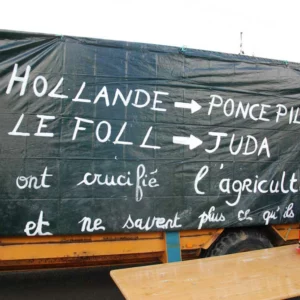 HOLLANDE → PONCE PIL
LE FOLL → JUDA
ont crucifié l'agricult
et ne savent plus ce qu'ils